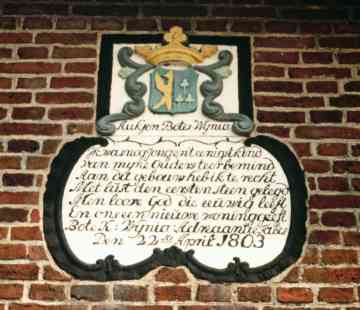 Aukjen Botes Wynia
Ik was nog jong en t enigst kind
van myne Ouders teer bemind
Aan dit gebouw heb ik te recht
Met lust den eersten steen gelegd
Ten loove God die eeuwig leeft
En ons een nieuwe woning geeft
Botes K. Wynia Adreaantie Tabes
Den 22ste April 1803